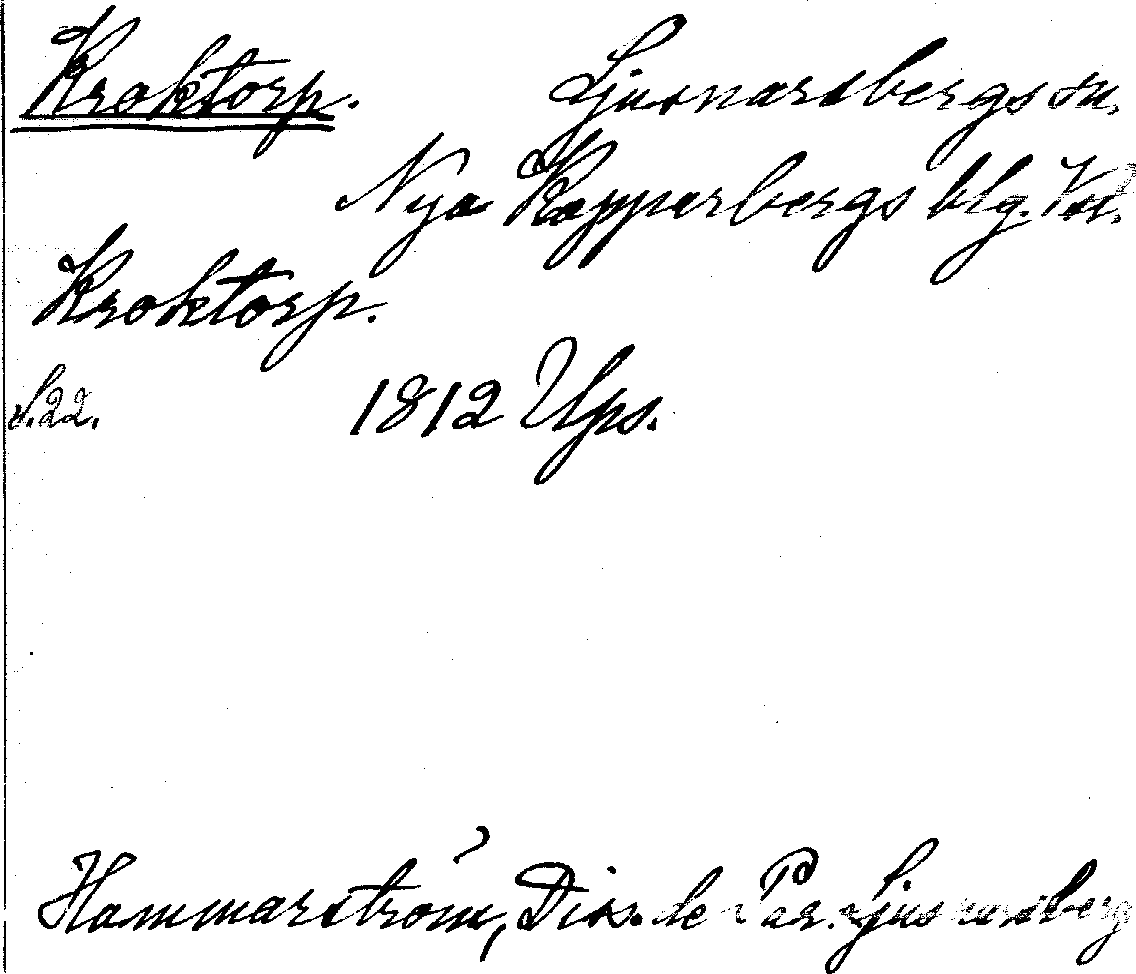 Kroktorp. Ljusnarsbergs sn.
Nya Kopparbergs blg. Vsl.
Kroktorp.
S. 22. 1812 Ups.
Hammarström, Diss. de Par. Ljusnarsberg